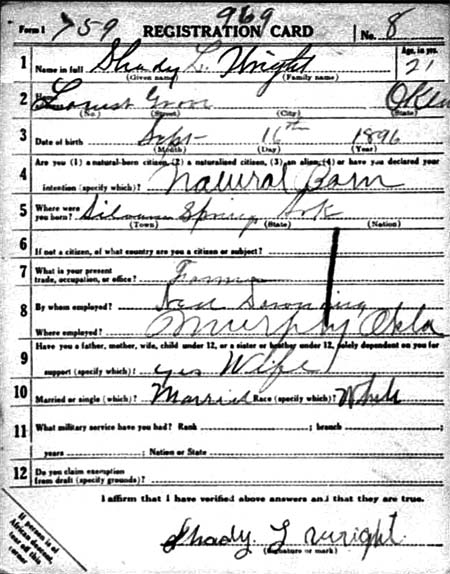 969
Form 1 759 REGISTRATION CARD No. 8
1 Name in full Shady L. Wright Age, in yrs. 21
(Given name) (Family name)
2 Locust Grove Okla
(No.) (Street) (City) (State)
3 Date of birth Sept 16th 1896
(Month) (Day) (Year)
4 Are you (1) a natural-born citizen, (2) a naturalized citizen, (3) an alien, (4) or have you declared your
intention (specify which)? Natural Born
5 Where were you born? Siloam Springs Ark
(Town) (State) (Nation)
6 If not a citizen, of what country are you a citizen or subject?
7 What is your present trade, occupation, or office? Farming
8 By whom employed?
Where employed? Murphy Okla
9 Have you a father, mother, wife, child under 12, or a sister or brother under 12, solely dependent on you for
support (specify which)? yes Wife
10 Married or single (which)? Married Race (specify which)? White
11 What military service have you had? Rank ; branch ;
years ; Nation or State
12 Do you claim exemption from draft (specify grounds)?
I affirm that I have verified above answers and that they are true.
Shady L Wright
(Signature or mark)
If person is of
African descent,
tear off this
corner.